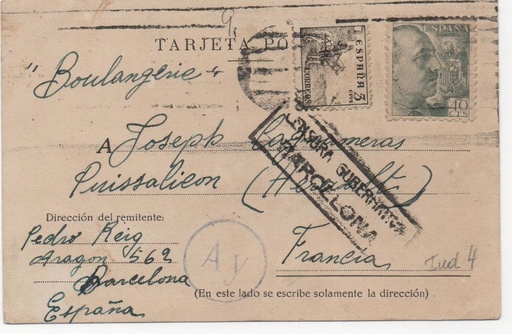 TARJETA PO
ESPAÑA 5 CTS
CORREOS
ESPAÑA
40
CTS
"Boulangerie"
A Joseph
Puissalicon (Herault)
CENSURA GUBERNATIVA
BARCELONA
Francia
Dirección del remitente:
Pedro Reig
Aragon 562
Barcelona
España
Ay
(En este lado se escribe solamente la dirección)